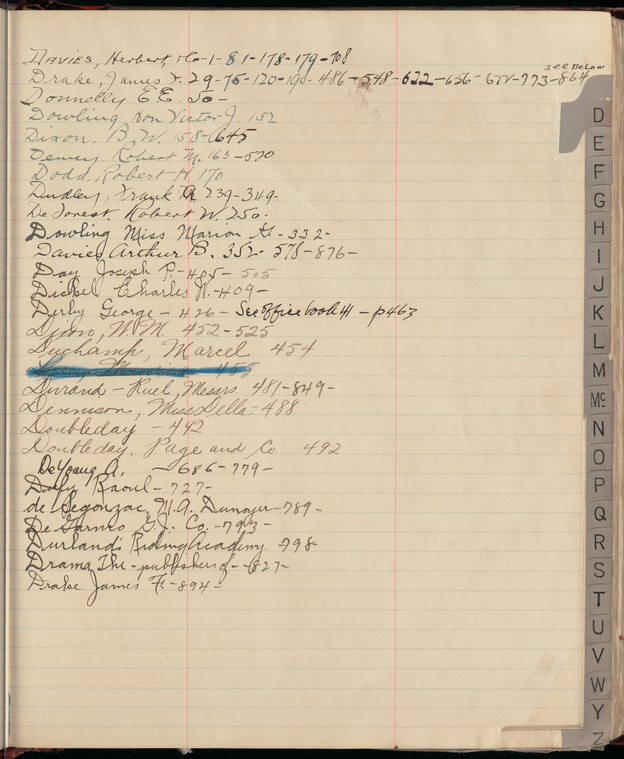 DAVIES, Herbert, Co-1-81-178-179-708
see Below
Drake, James F. 29-75-120-190-486-548-622-656-677-773-864
Donnelly E.E. 50-
Dowling Hon Victor J. 152
Dixon, B.W. 158-645
Dewey, Robert M. 163-570
Dodd, Robert H 170
Dudley, Frank A. 239-349-
De Forest Robert W. 250-
Dowling Miss Marion 332-
Davies Arthur B. 352-578-876-
Day Joseph P.-405-505
Dickel Charles W.-409-
Derby George-426-See office book 41-p463
Dixon, W.M. 452-525
Duchamp, Marcel 454
455
Durand-Ruel, Messrs. 481-849-
Dennison, Miss Della-488
Doubleday -492
Doubleday, Page and Co. 492
De Young A. -686-779-
Dufy Raoul-727-
de Segonzac, M.A. Dunoyer-789-
De Garmo G.J. Co.-793-
Durland's Riding Academy. 798-
Drama The-publishers of-827-
Drake James F.-894-
D
E
F
G
H
I
J
K
L
M
Mc
N
O
P
Q
R
S
T
U
V
W
Y
Z